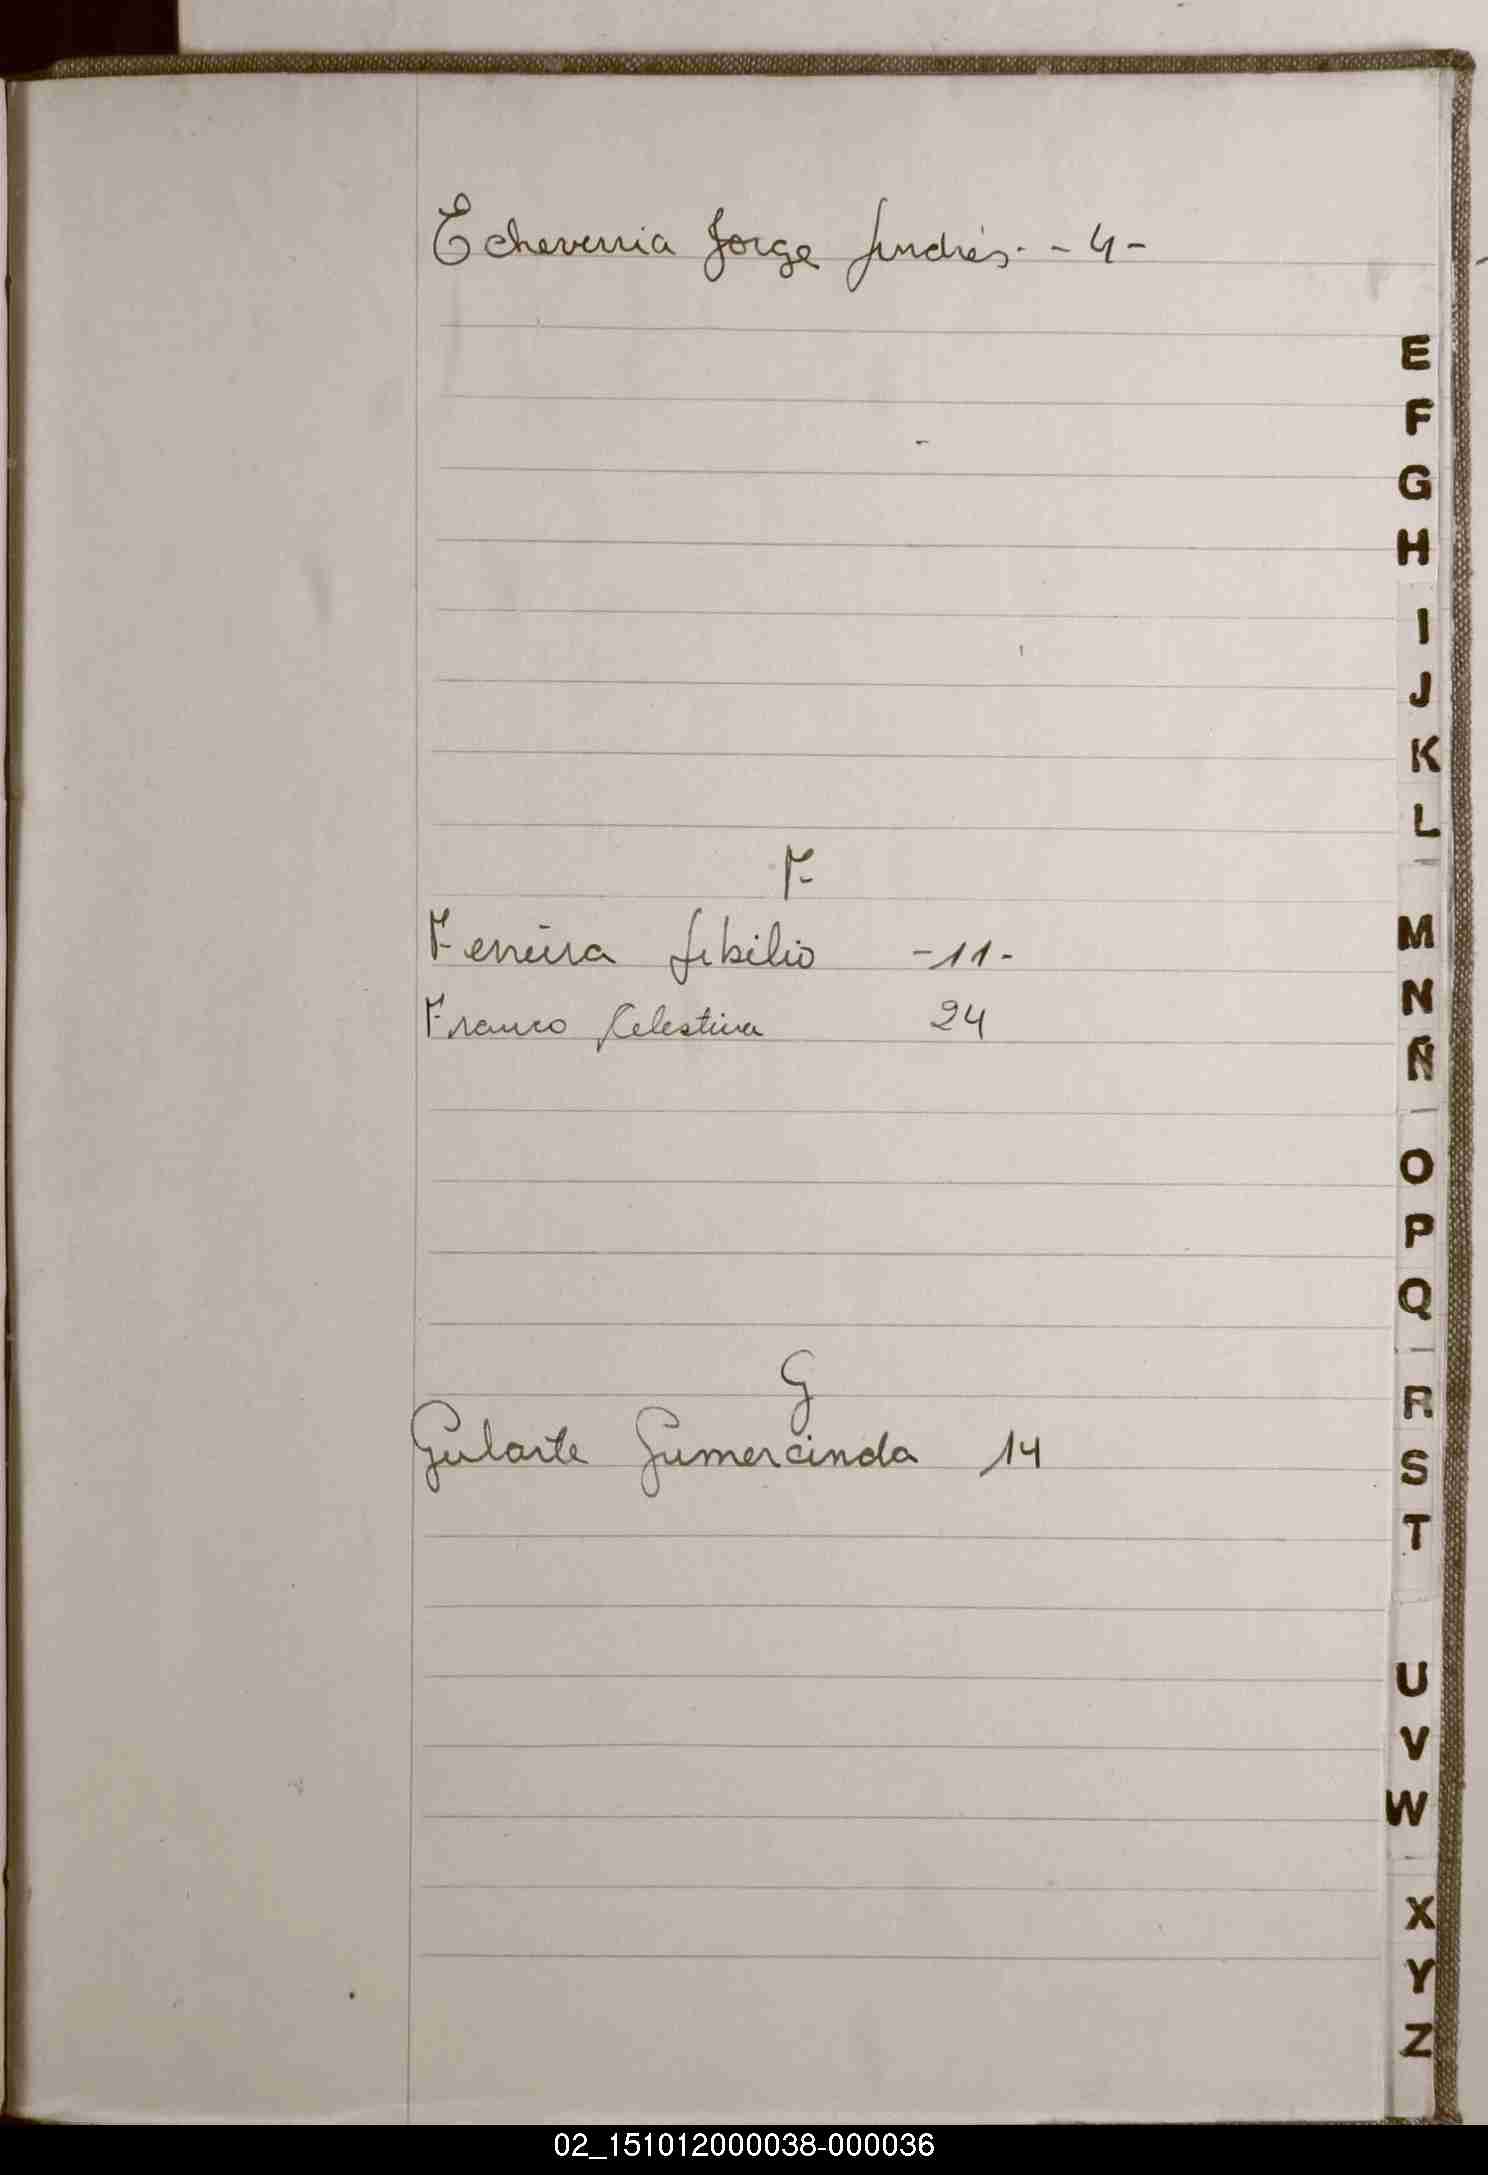 Echeverria Jorge Andrés. - 4 -
E
F
G
H
I
J
K
L
F
Ferreira Abilio -11-
M
Franco Celestina 24
N
Ñ
O
P
Q
G
R
Gularte Gumercinda 14
S
T
U
V
W
X
Y
Z
02_151012000038-000036